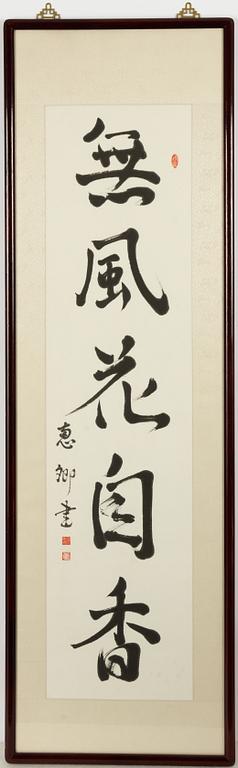 無風花自香
惠卿書